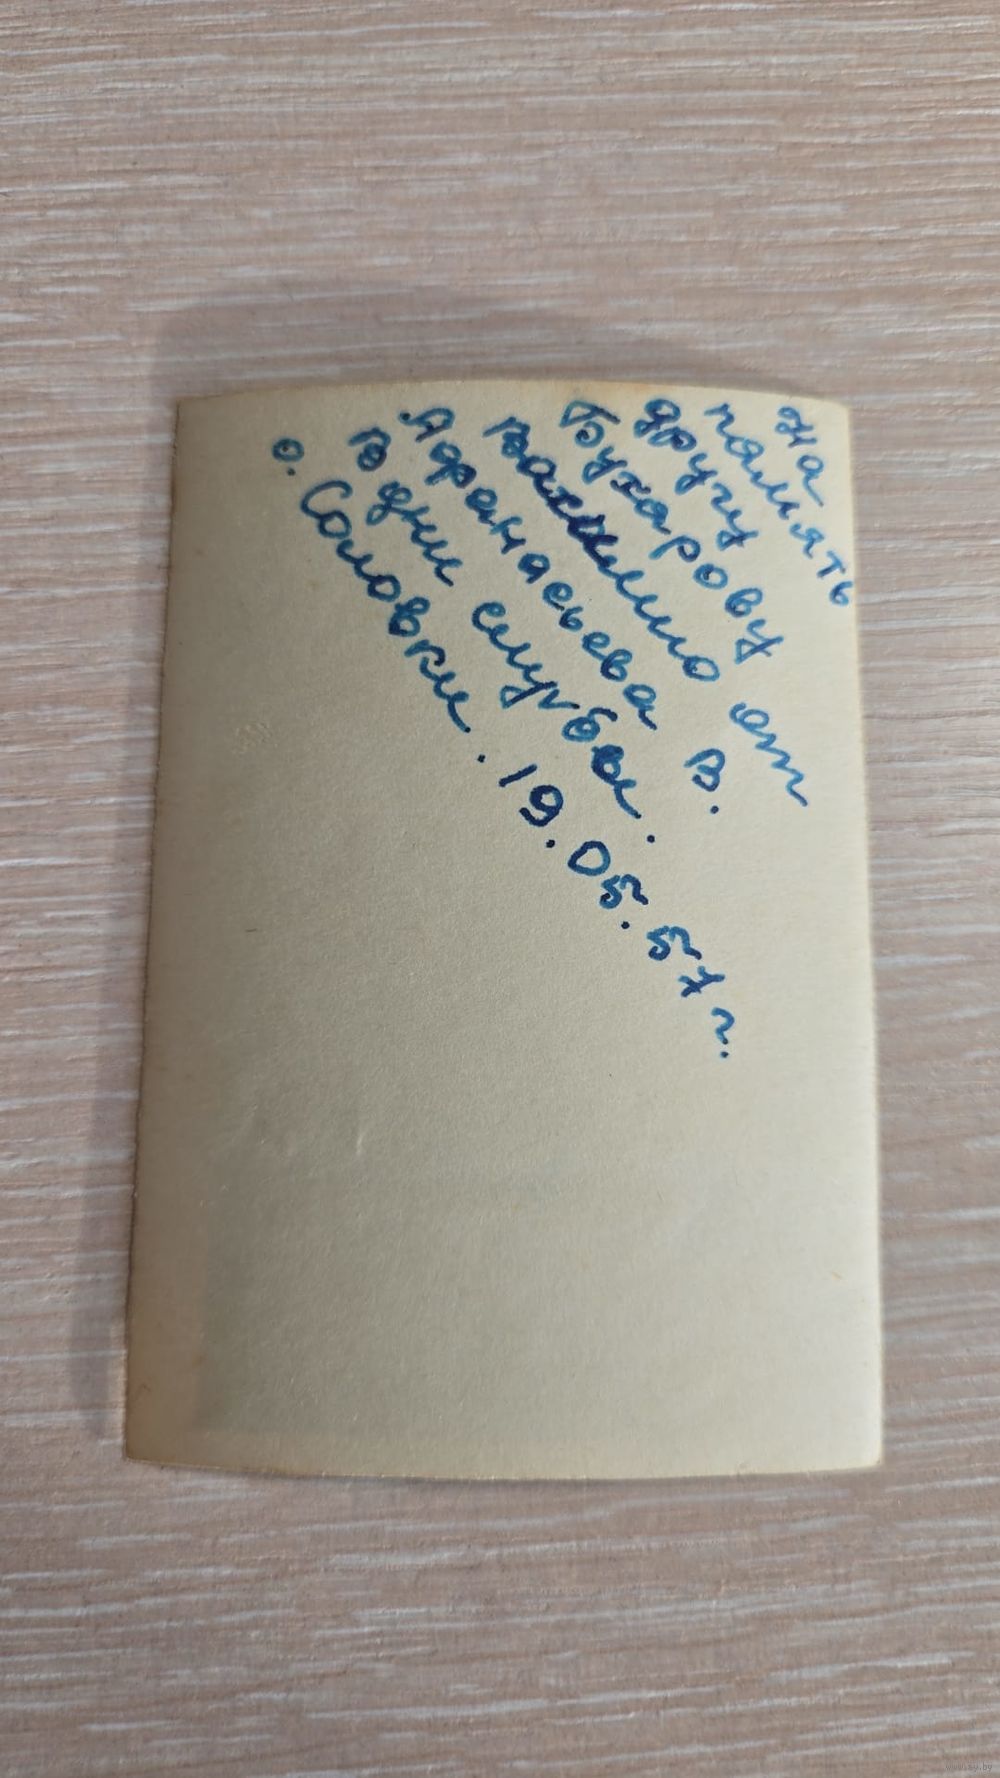 На
память
другу
Бухарову
от
Афанасьева В.
В дни службы.
о. Соловки. 19.05.57 г.
www.ay.by